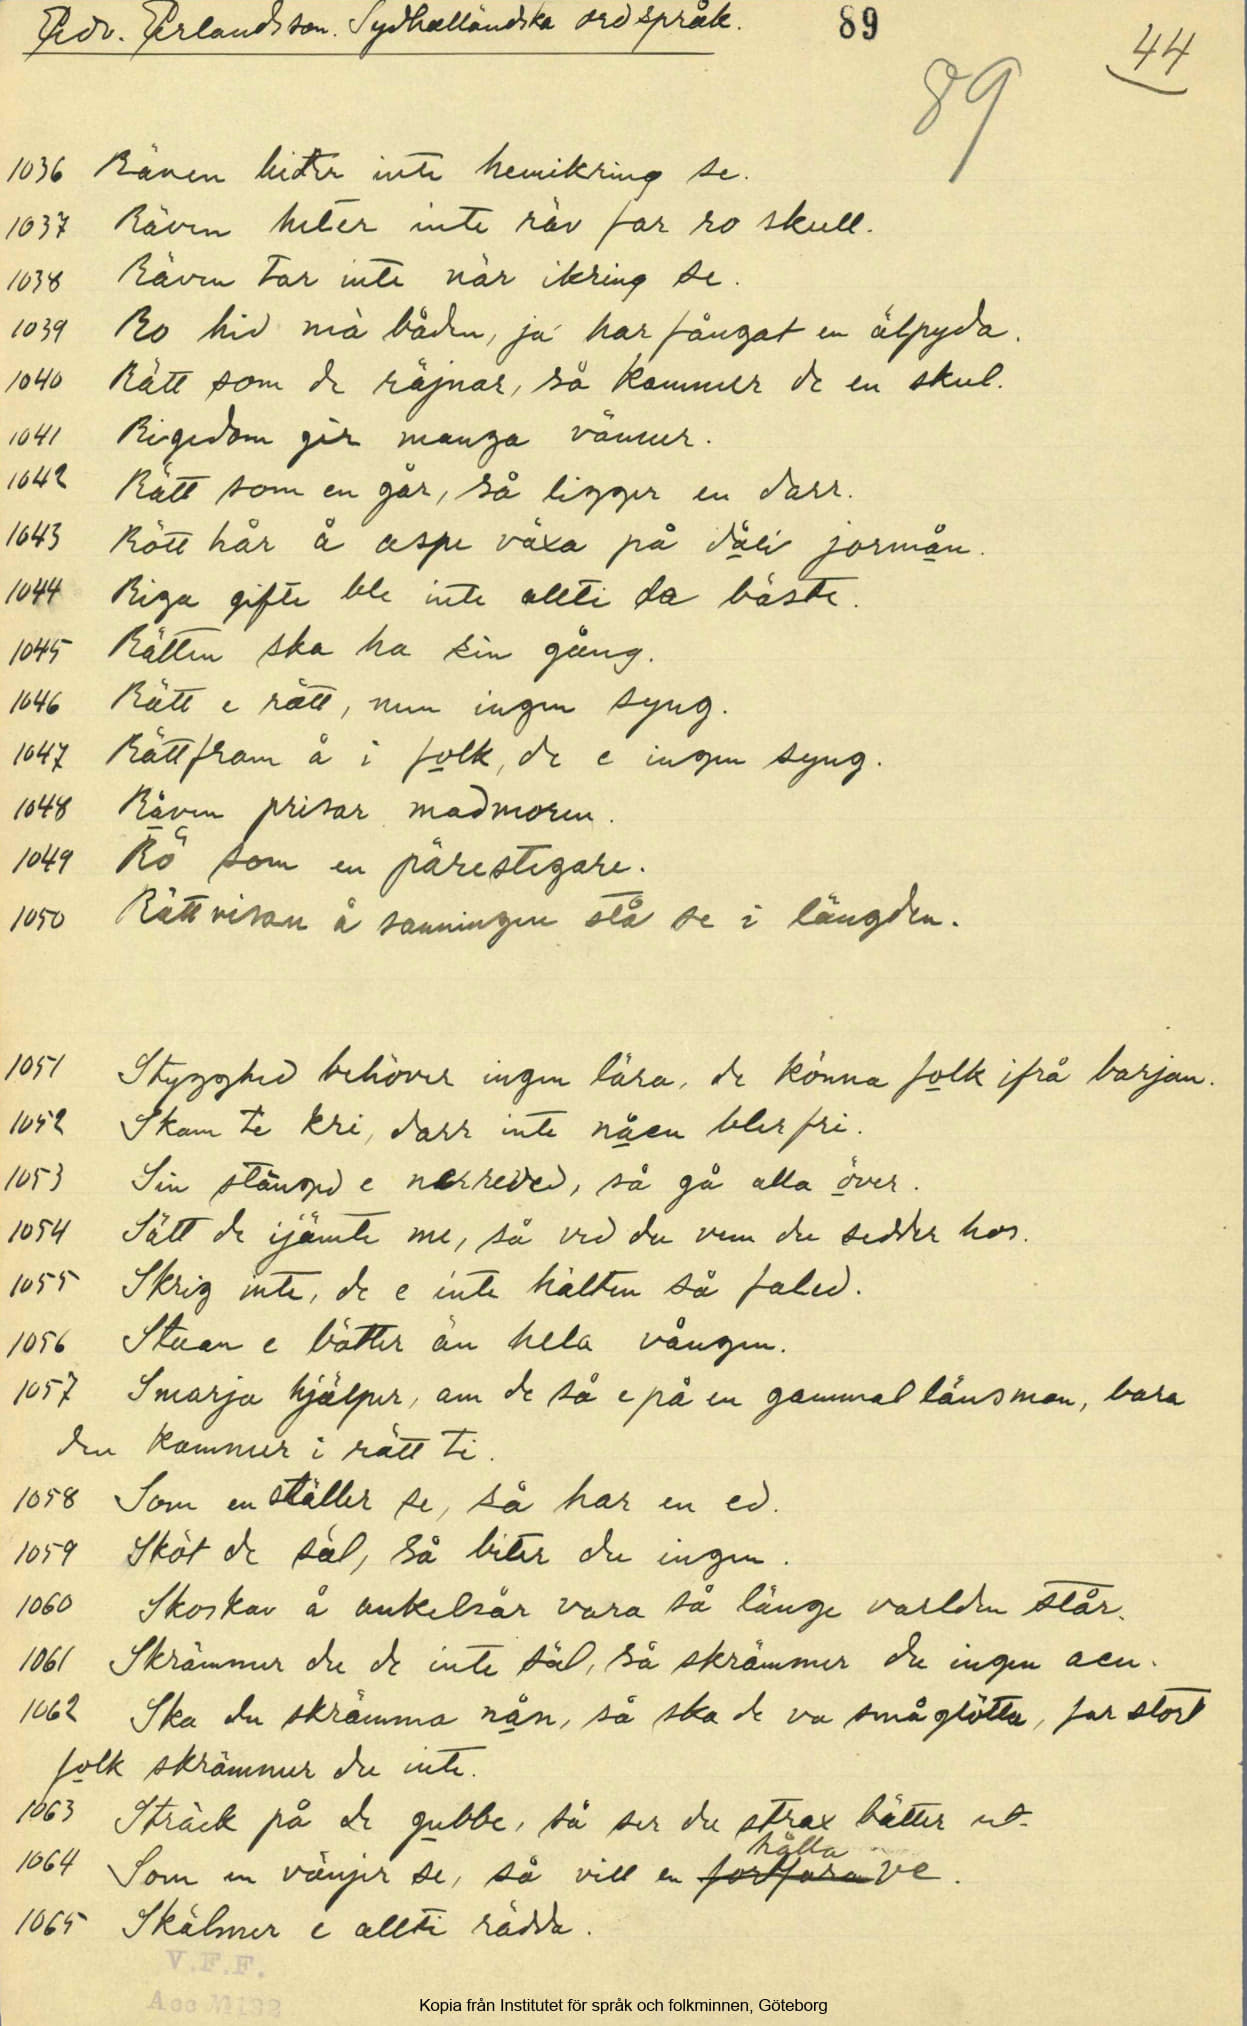 Edv. Erlandsson. Sydhalländska ordspråk. 89 44
89
1036 Räven bider inte hemikring se.
1037 Räven heter inte räv for ro skull.
1038 Räven tar inte när ikring se.
1039 Ro hid mä båden, ja har fångat en älpyda.
1040 Rätt som de räjnar, så kommer de en skul.
1041 Rigedom gir manga vänner.
1042 Rätt som en går, så ligger en darr.
1043 Rött hår å aspe växa på dåli jormån.
1044 Riga gifte ble inte allti da bäste.
1045 Rätten ska ha sin gång.
1046 Rätt e rätt, men ingen syng.
1047 Rättfram å i folk, de e ingen syng.
1048 Räven prisar madmoren.
1049 Rö som en pärestegare.
1050 Rättvisan å sanningen stå se i längden.
1051 Stygghed behöver ingen lära, de könna folk ifrå barjan.
1052 Skam te kri, darr inte nåen bler fri.
1053 Sin stängd e nerreded, så gå alla över.
1054 Sätt de ijämte me, så ved du vem du sedder hos.
1055 Skrig inte, de e inte hälten så faled.
1056 Stuan e bätter än hela vången.
1057 Smarja hjälper, om de så e på en gammal länsman, bara
den kommer i rätt ti.
1058 Som en ställer se, så har en ed.
1059 Sköt de säl, så biter du ingen.
1060 Skoskav å ankelsår vara så länge varlden står.
1061 Skrämmer du de inte säl, så skrämmer du ingen aen.
1062 Ska du skrämma nån, så ska de va små glötta, for stort
folk skrämmer du inte.
1063 Sträck på de gubbe, så ser du strax bätter ut.
hålla
1064 Som en vänjer se, så vill en fortfara ve.
1065 Skälmer e allti rädda.
V.F.F.
Acc M122
Kopia från Institutet för språk och folkminnen, Göteborg